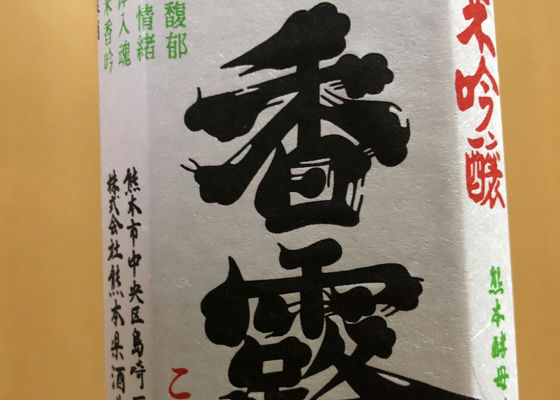 米吟醸
熊本酵母
香露
こ
馥郁
情緒
入魂
香吟
熊本市中央区島崎
株式会社熊本県酒